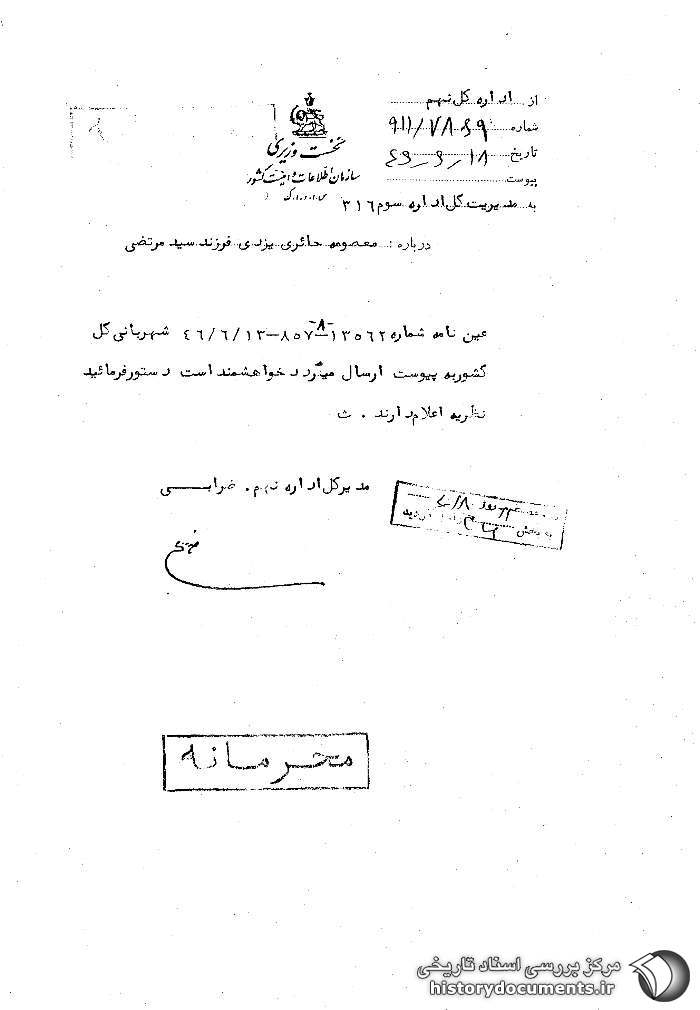 از اداره کل نهم
شماره ۹۱۱/۷۸۶۹
تاریخ ۴۶/۶/۱۸
پیوست
نخست وزیری
سازمان اطلاعات و امنیت کشور
س.ا.و.ا.ک
به مدیریت کل اداره سوم ۳۱۶
درباره : معصومه حائری یزدی فرزند سید مرتضی
عین نامه شماره ۱۳۵۶۲-۸۵۷-۸-۴۶/۶/۱۳ شهربانی کل
کشور به پیوست ارسال میگردد خواهشمند است دستور فرمائید
نظریه اعلام دارند . ث
مدیر کل اداره نهم . ضرابــی
به بخش
محرمانه
مرکز بررسی اسناد تاریخی
historydocuments.ir